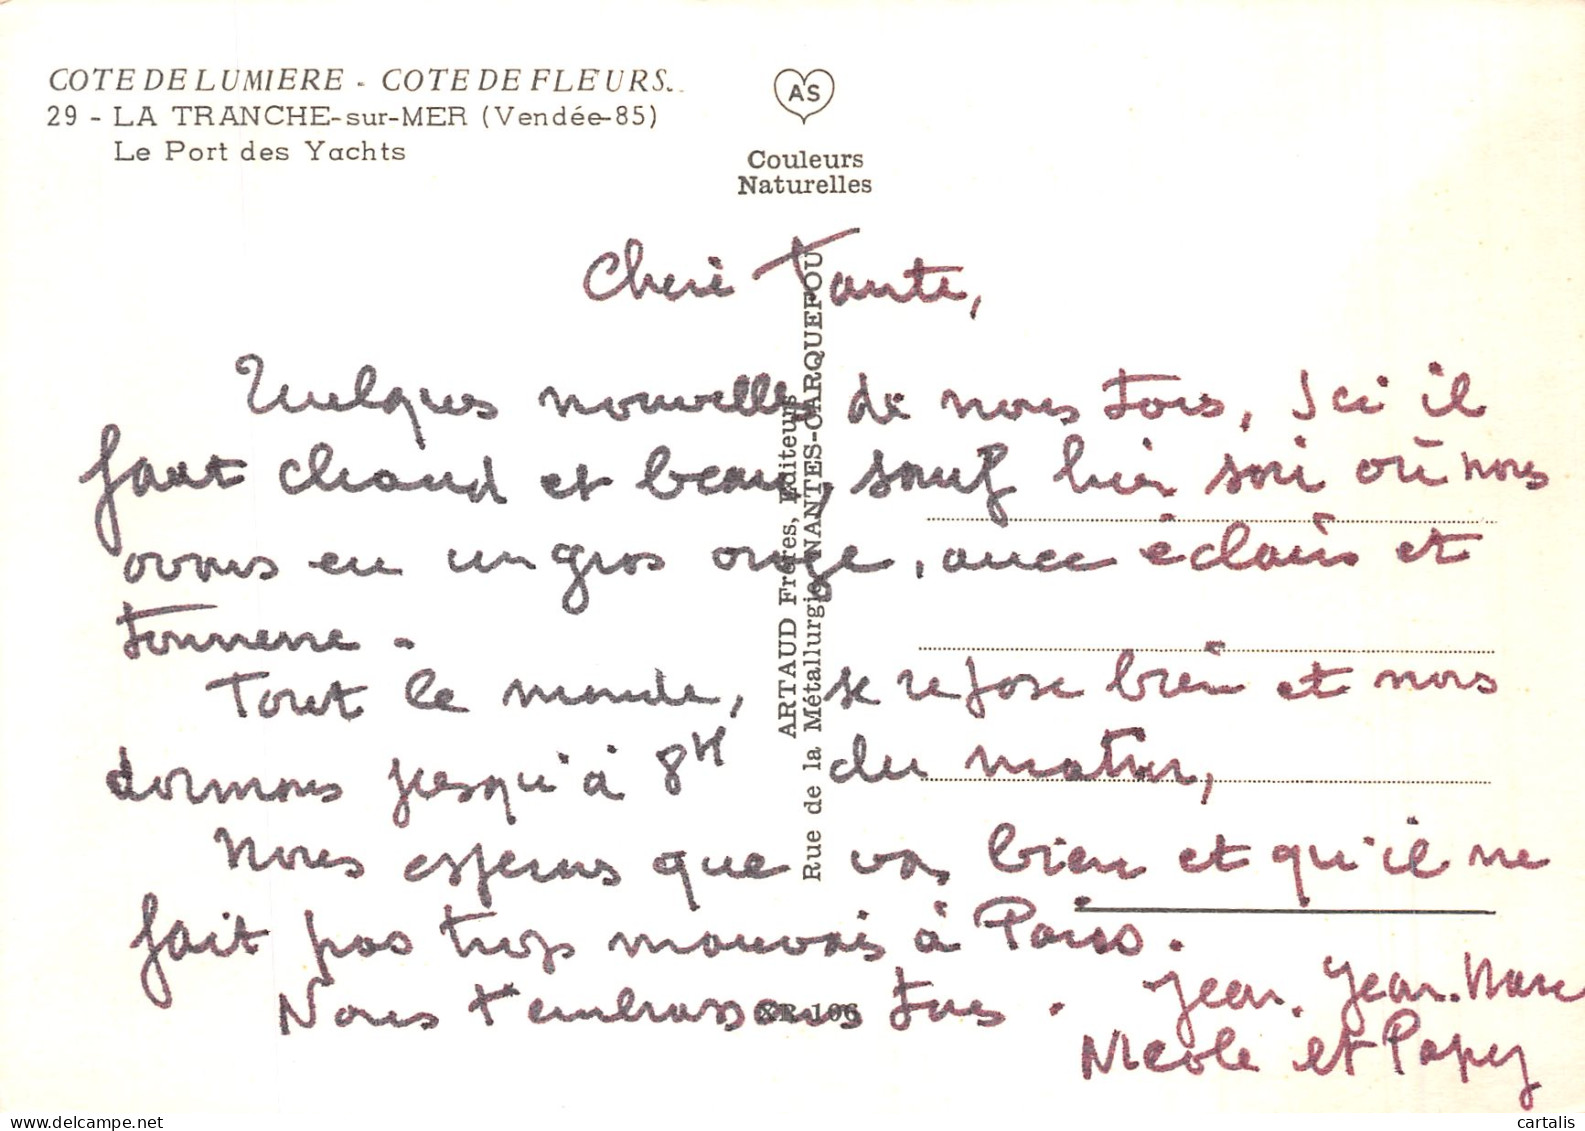 COTE DE LUMIERE - COTE DE FLEURS.
29 - LA TRANCHE-sur-MER (Vendée-85)
Le Port des Yachts
AS
Couleurs
Naturelles
ARTAUD Frères, Editeurs
Rue de la Métallurgie NANTES-CARQUEFOU
Cheré Tante,
Quelques nouvelles de nous tous, Ici il
faut chaud et beau, sauf hier soir où nous
avons eu un gros orage, avec éclairs et
tonnerre.
Tout le monde, se repose bien et nous
dormons jusqu'à 8H du matin,
Nous esperons que vas bien et qu'il ne
fait pas trop mauvais à Paris.
Nous t'embrassons tous. Jean, Jean-Marc
Nicole et Papy
XR 106
cartalis